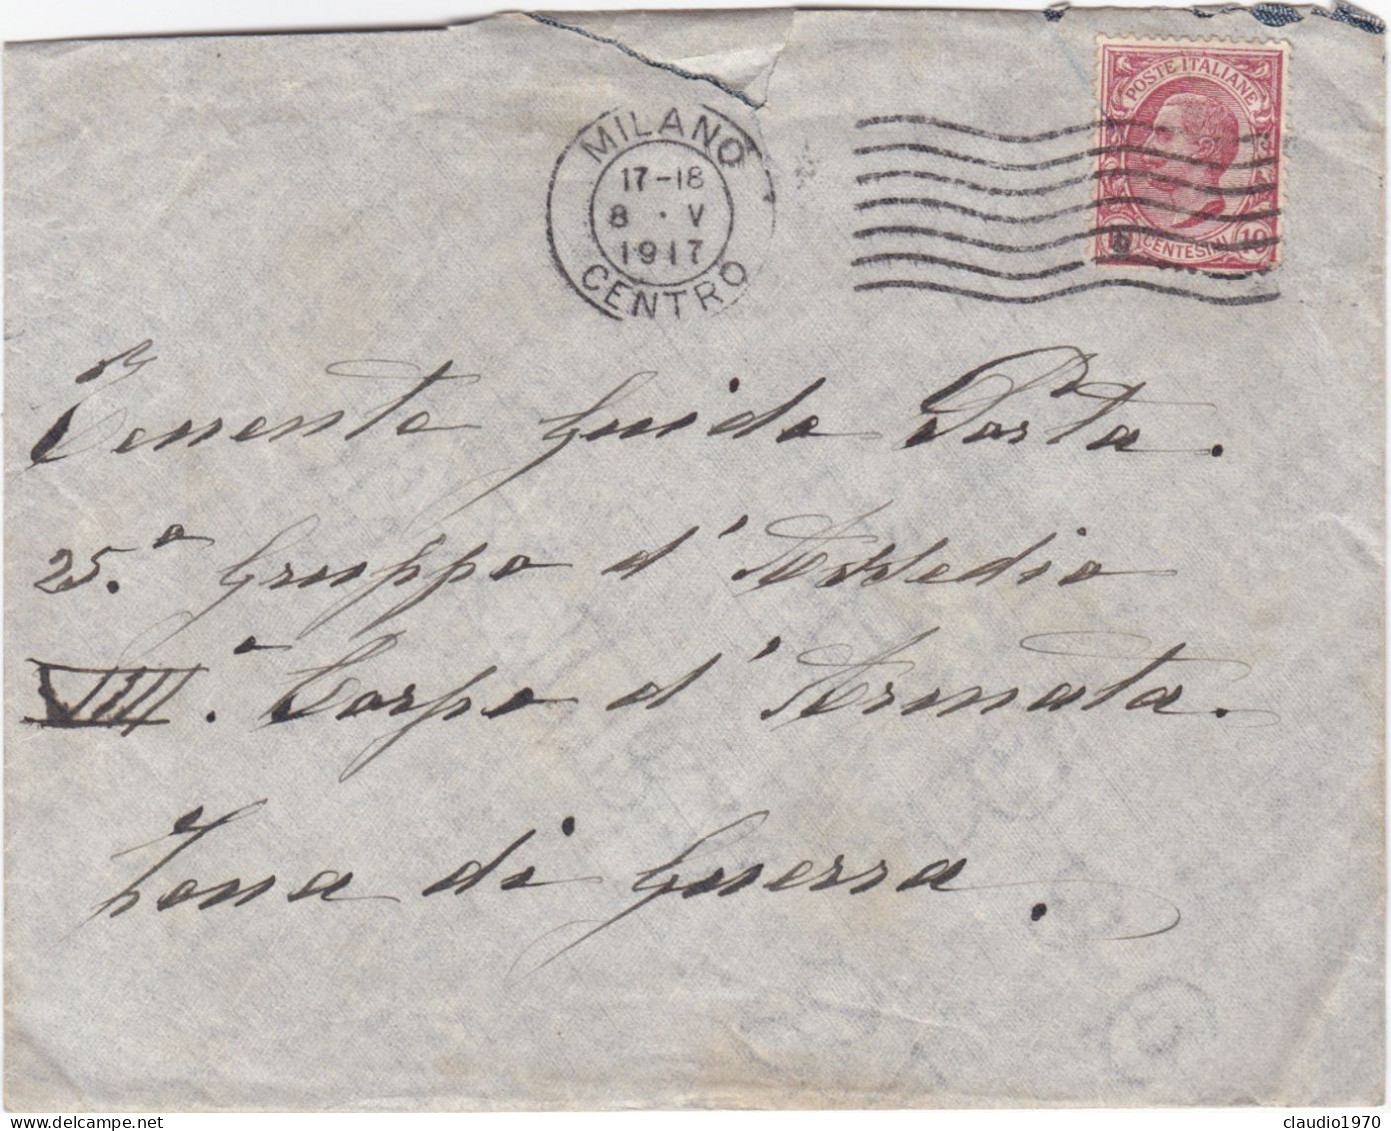 POSTE ITALIANE
CENTESINI 10
MILANO
17-18
8 · V
1917
CENTRO
Tenente Guido Porta.
25.° Gruppo d'Assedio
VIII.° Corpo d'Armata.
Zona di Guerra.
claudio1970